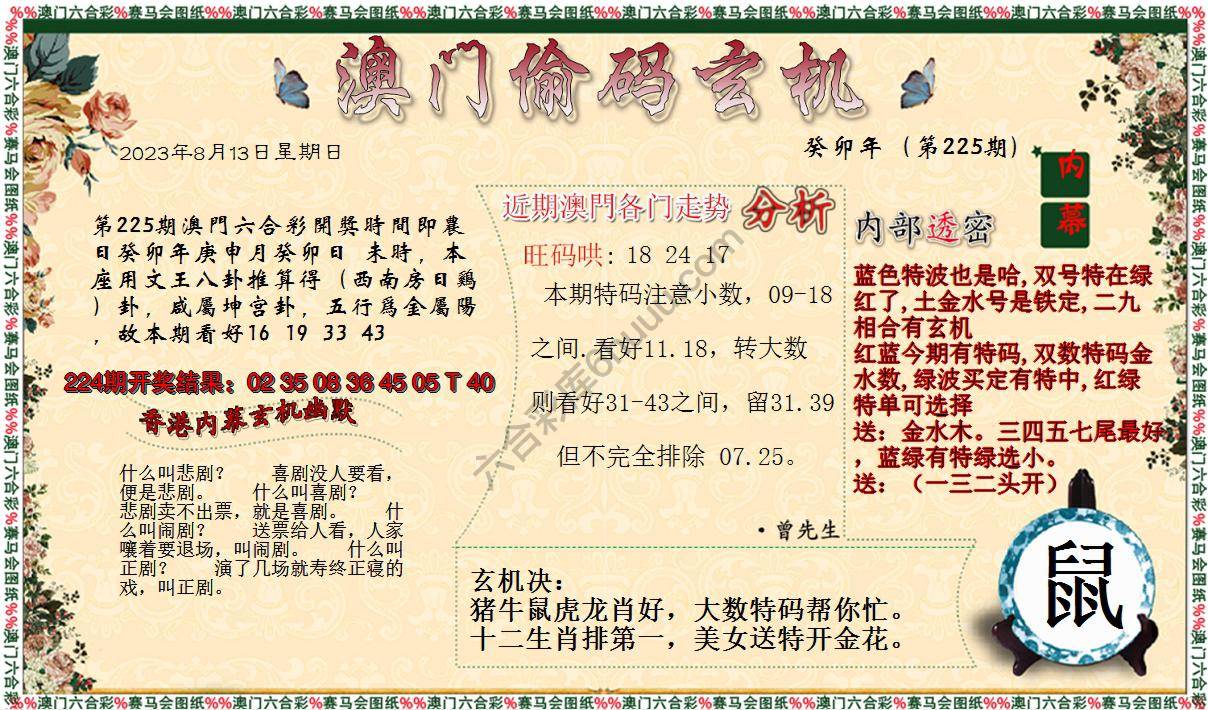 %%澳门六合彩%赛马会图纸%%澳门六合彩%赛马会图纸%%澳门六合彩%赛马会图纸
澳门偷码玄机
2023年8月13日星期日
癸卯年（第225期）
内幕
第225期澳門六合彩開獎時間即農
日癸卯年庚申月癸卯日 未時，本
座用文王八卦推算得（西南房日鷄
）卦，咸屬坤宫卦，五行爲金屬陽
，故本期看好16 19 33 43
224期开奖结果：02 35 08 36 45 05 T 40
香港内幕玄机幽默
什么叫悲剧？ 喜剧没人要看，
便是悲剧。 什么叫喜剧？
悲剧卖不出票，就是喜剧。 什
么叫闹剧？ 送票给人看，人家
嚷着要退场，叫闹剧。 什么叫
正剧？ 演了几场就寿终正寝的
戏，叫正剧。
近期澳門各门走势 分析
旺码哄: 18 24 17
本期特码注意小数，09-18
之间.看好11.18，转大数
则看好31-43之间，留31.39
但不完全排除 07.25。
·曾先生
内部透密
蓝色特波也是哈,双号特在绿
红了,土金水号是铁定,二九
相合有玄机
红蓝今期有特码,双数特码金
水数,绿波买定有特中,红绿
特单可选择
送：金水木。三四五七尾最好
，蓝绿有特绿选小。
送：（一三二头开）
玄机决：
猪牛鼠虎龙肖好，大数特码帮你忙。
十二生肖排第一，美女送特开金花。
鼠